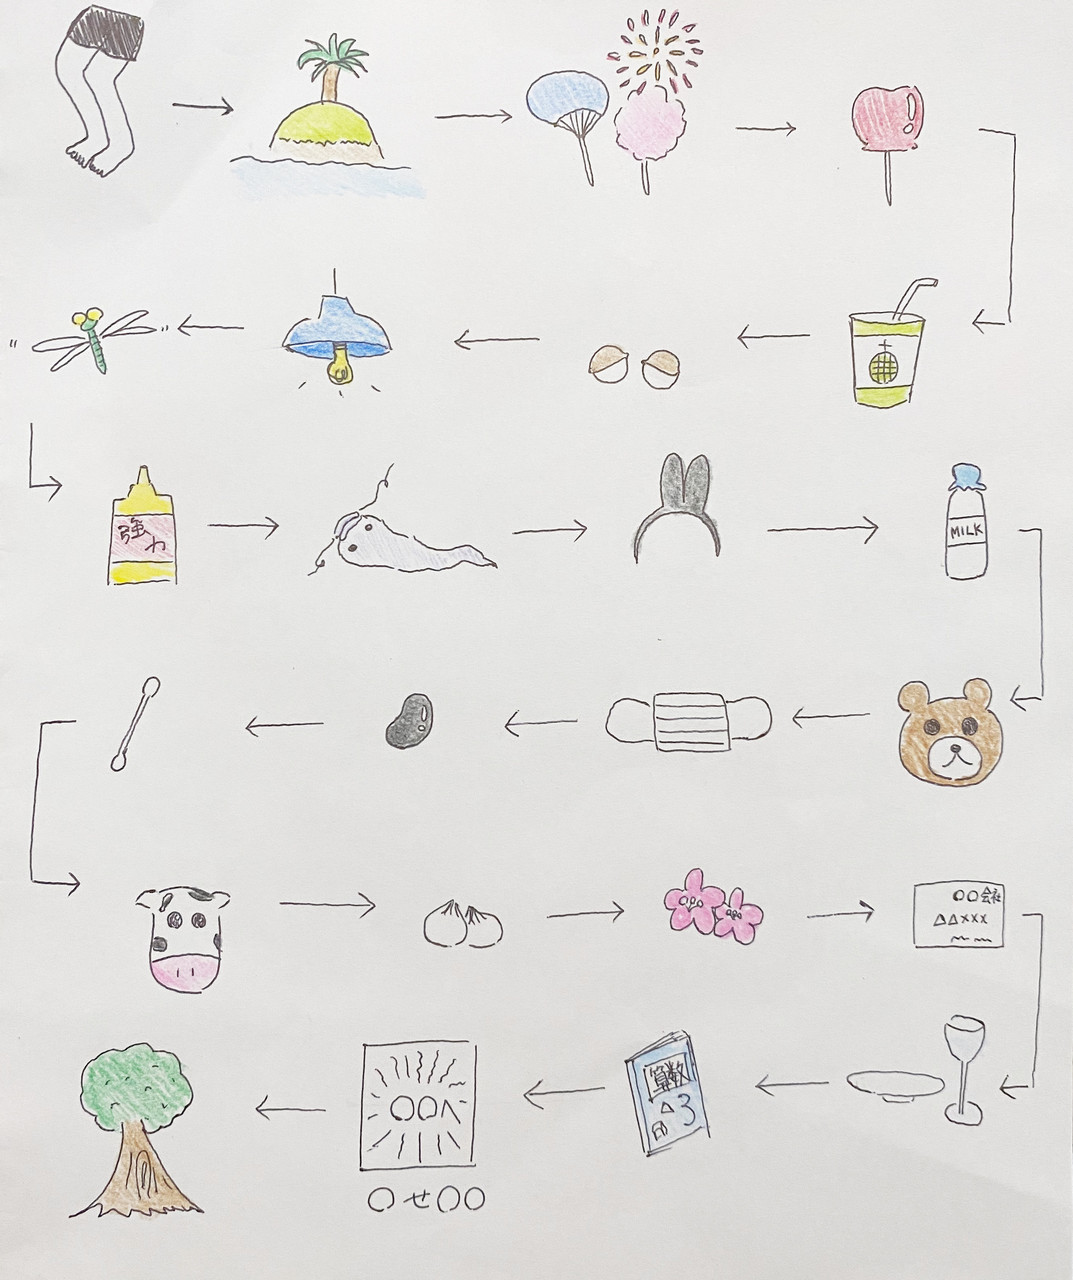 強
力
MILK
〇〇会社
△△×××
算数
△3
〇〇へ
〇せ〇〇